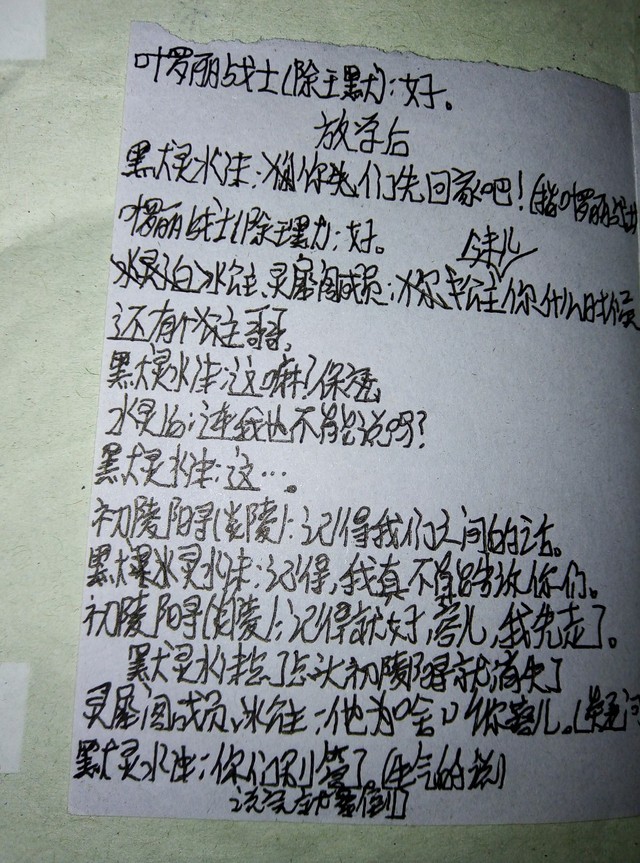 叶罗丽战士(除王默):好。
放学后
黑犬灵水洙:你先们先回家吧!(指叶罗丽战士
叶罗丽战士(除王默):好。
洙儿
冰公主、灵犀阁成员:公主你什么时候
还有个公主哥哥,
黑犬灵水洙:这嘛?保密
水灵:连我也不能说吗?
黑犬灵水洙:这…。
初陵阳浔(炎陵):记得我们之间的话。
黑犬灵水洙:记得,我真不能告诉你们。
初陵阳浔(炎陵):记得就好,蓉儿,我先走了。
黑犬灵水洙点了点头初陵阳浔就消失了
灵犀阁成员、冰公主:他为啥叫你蓉儿。
黑犬灵水洙:你们别管了。(生气的说)